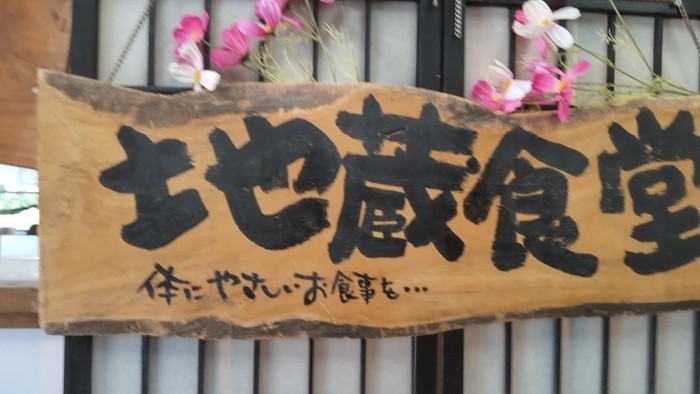 地蔵食堂
体にやさしいお食事を…